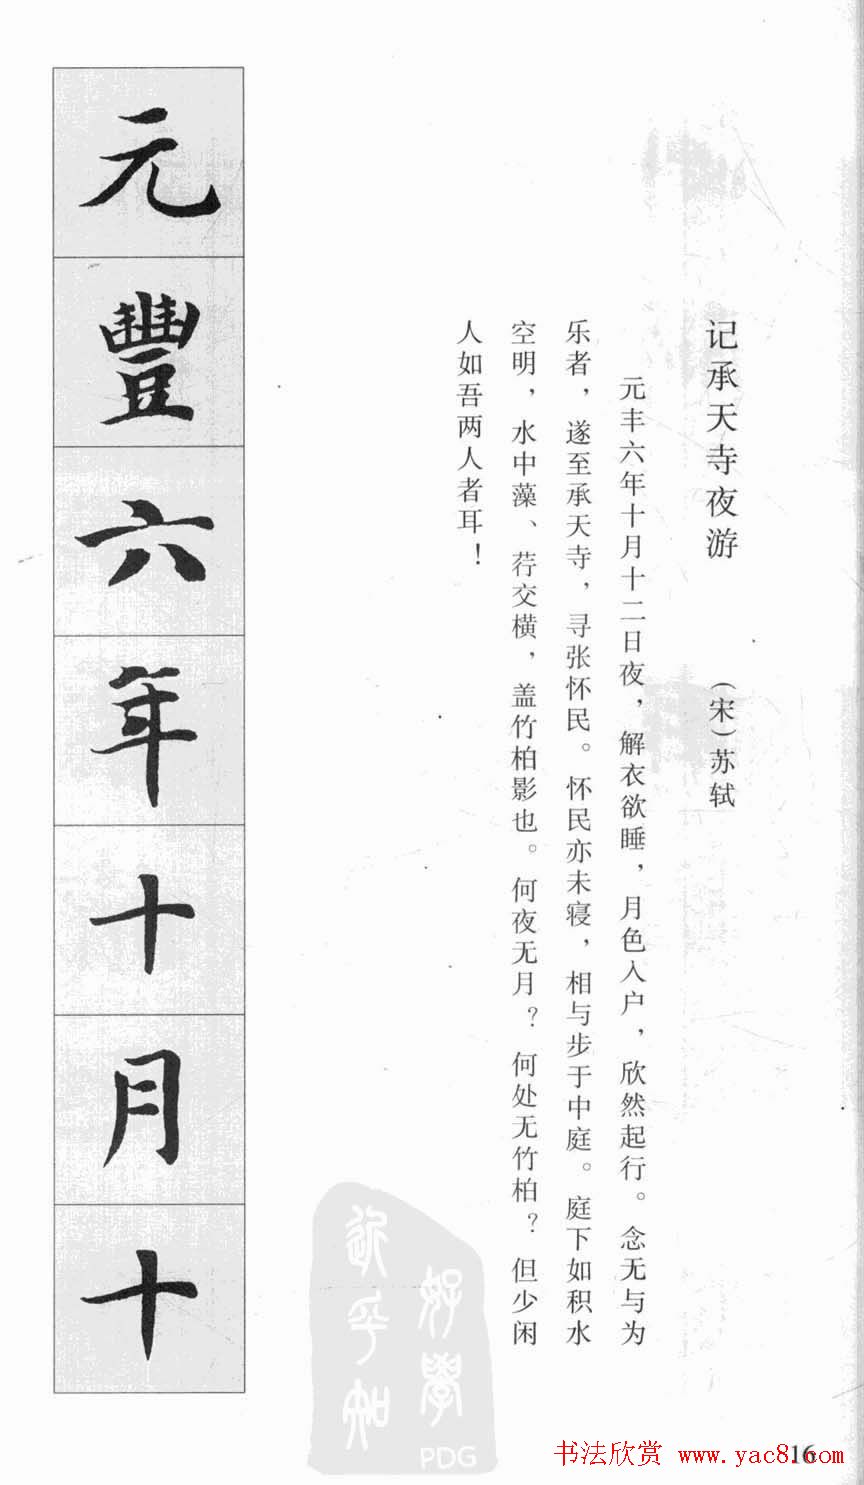 记承天寺夜游 (宋)苏轼
元丰六年十月十二日夜，解衣欲睡，月色入户，欣然起行。念无与为
乐者，遂至承天寺，寻张怀民。怀民亦未寝，相与步于中庭。庭下如积水
空明，水中藻、荇交横，盖竹柏影也。何夜无月？何处无竹柏？但少闲
人如吾两人者耳！
元豐六年十月十
好學
近乎知
PDG
书法欣赏 www.yac8.com
16